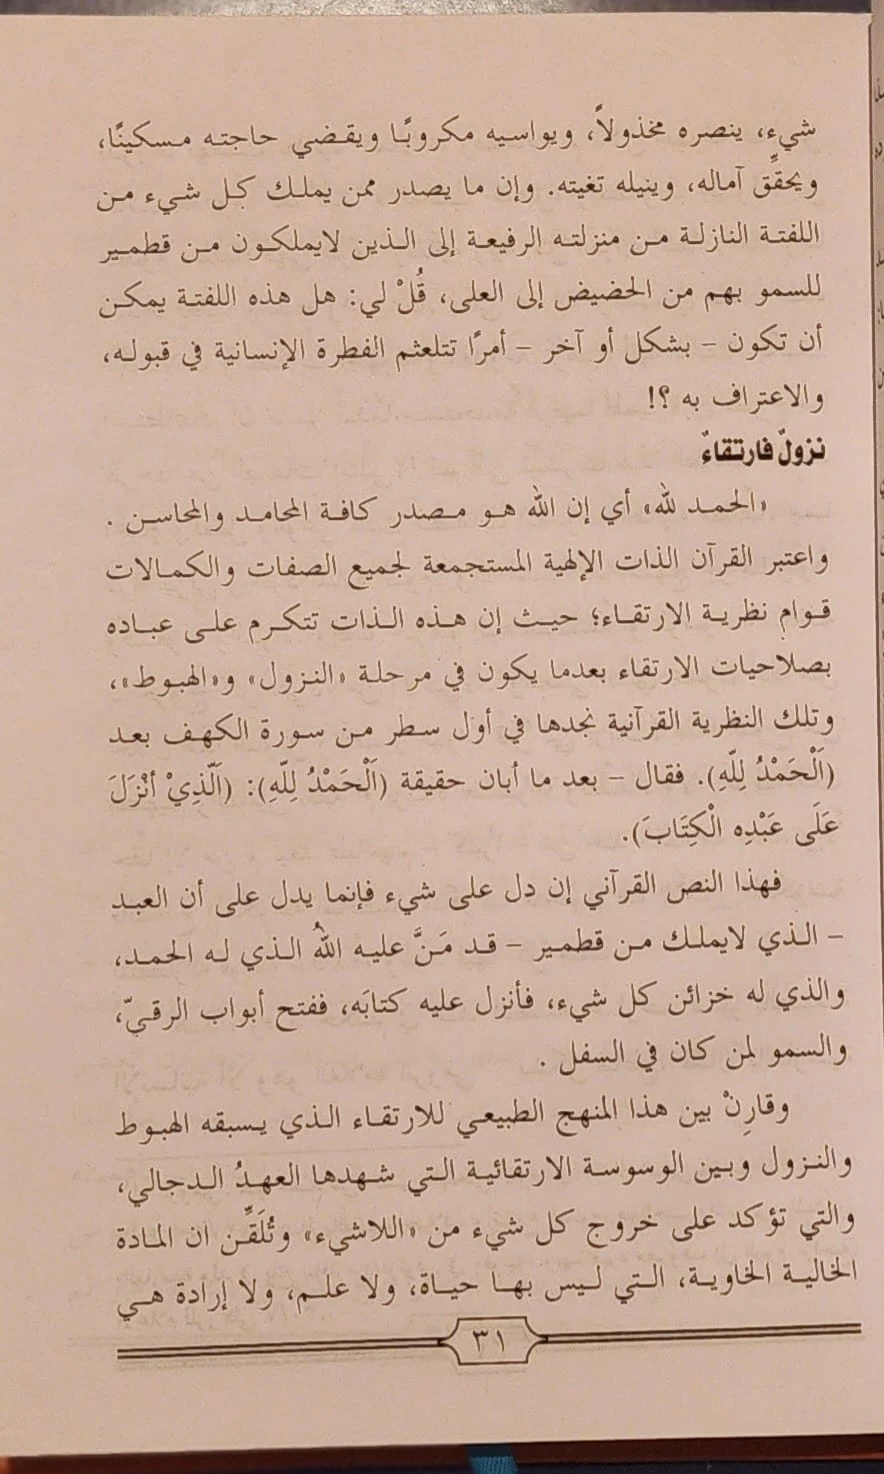 شيء، ينصره مخذولاً، ويواسيه مكروبًا ويقضي حاجته مسكينًا،
ويحقِّق آماله، وينيله تغيته. وإن ما يصدر ممن يملك كل شيء من
اللفتة النازلة من منزلته الرفيعة إلى الذين لايملكون من قطمير
للسمو بهم من الحضيض إلى العلى، قُلْ لي: هل هذه اللفتة يمكن
أن تكون – بشكل أو آخر – أمرًا تتلعثم الفطرة الإنسانية في قبوله،
والاعتراف به ؟!
نزولٌ فارتقاءٌ
«الحمد لله» أي إن الله هو مصدر كافة المحامد والمحاسن .
واعتبر القرآن الذات الإلهية المستجمعة لجميع الصفات والكمالات
قوام نظرية الارتقاء؛ حيث إن هذه الذات تتكرم على عباده
بصلاحيات الارتقاء بعدما يكون في مرحلة «النزول» و«الهبوط»،
وتلك النظرية القرآنية نجدها في أول سطر من سورة الكهف بعد
(اَلْحَمْدُ لِلّهِ). فقال – بعد ما أبان حقيقة (اَلْحَمْدُ لِلّهِ): (اَلَّذِيْ أنْزَلَ
عَلَى عَبْدِه الْكِتَابَ).
فهذا النص القرآني إن دل على شيء فإنما يدل على أن العبد
– الذي لايملك من قطمير – قد مَنَّ عليه اللهُ الذي له الحمد،
والذي له خزائن كل شيء، فأنزل عليه كتابَه، ففتح أبواب الرقيّ،
والسمو لمن كان في السفل .
وقارِنْ بين هذا المنهج الطبيعي للارتقاء الذي يسبقه الهبوط
والنزول وبين الوسوسة الارتقائية التي شهدها العهدُ الدجالي،
والتي تؤكد على خروج كل شيء من «اللاشيء» وتُلَقِّن ان المادة
الخالية الخاوية، التي ليس بها حياة، ولا علم، ولا إرادة هي
٣١